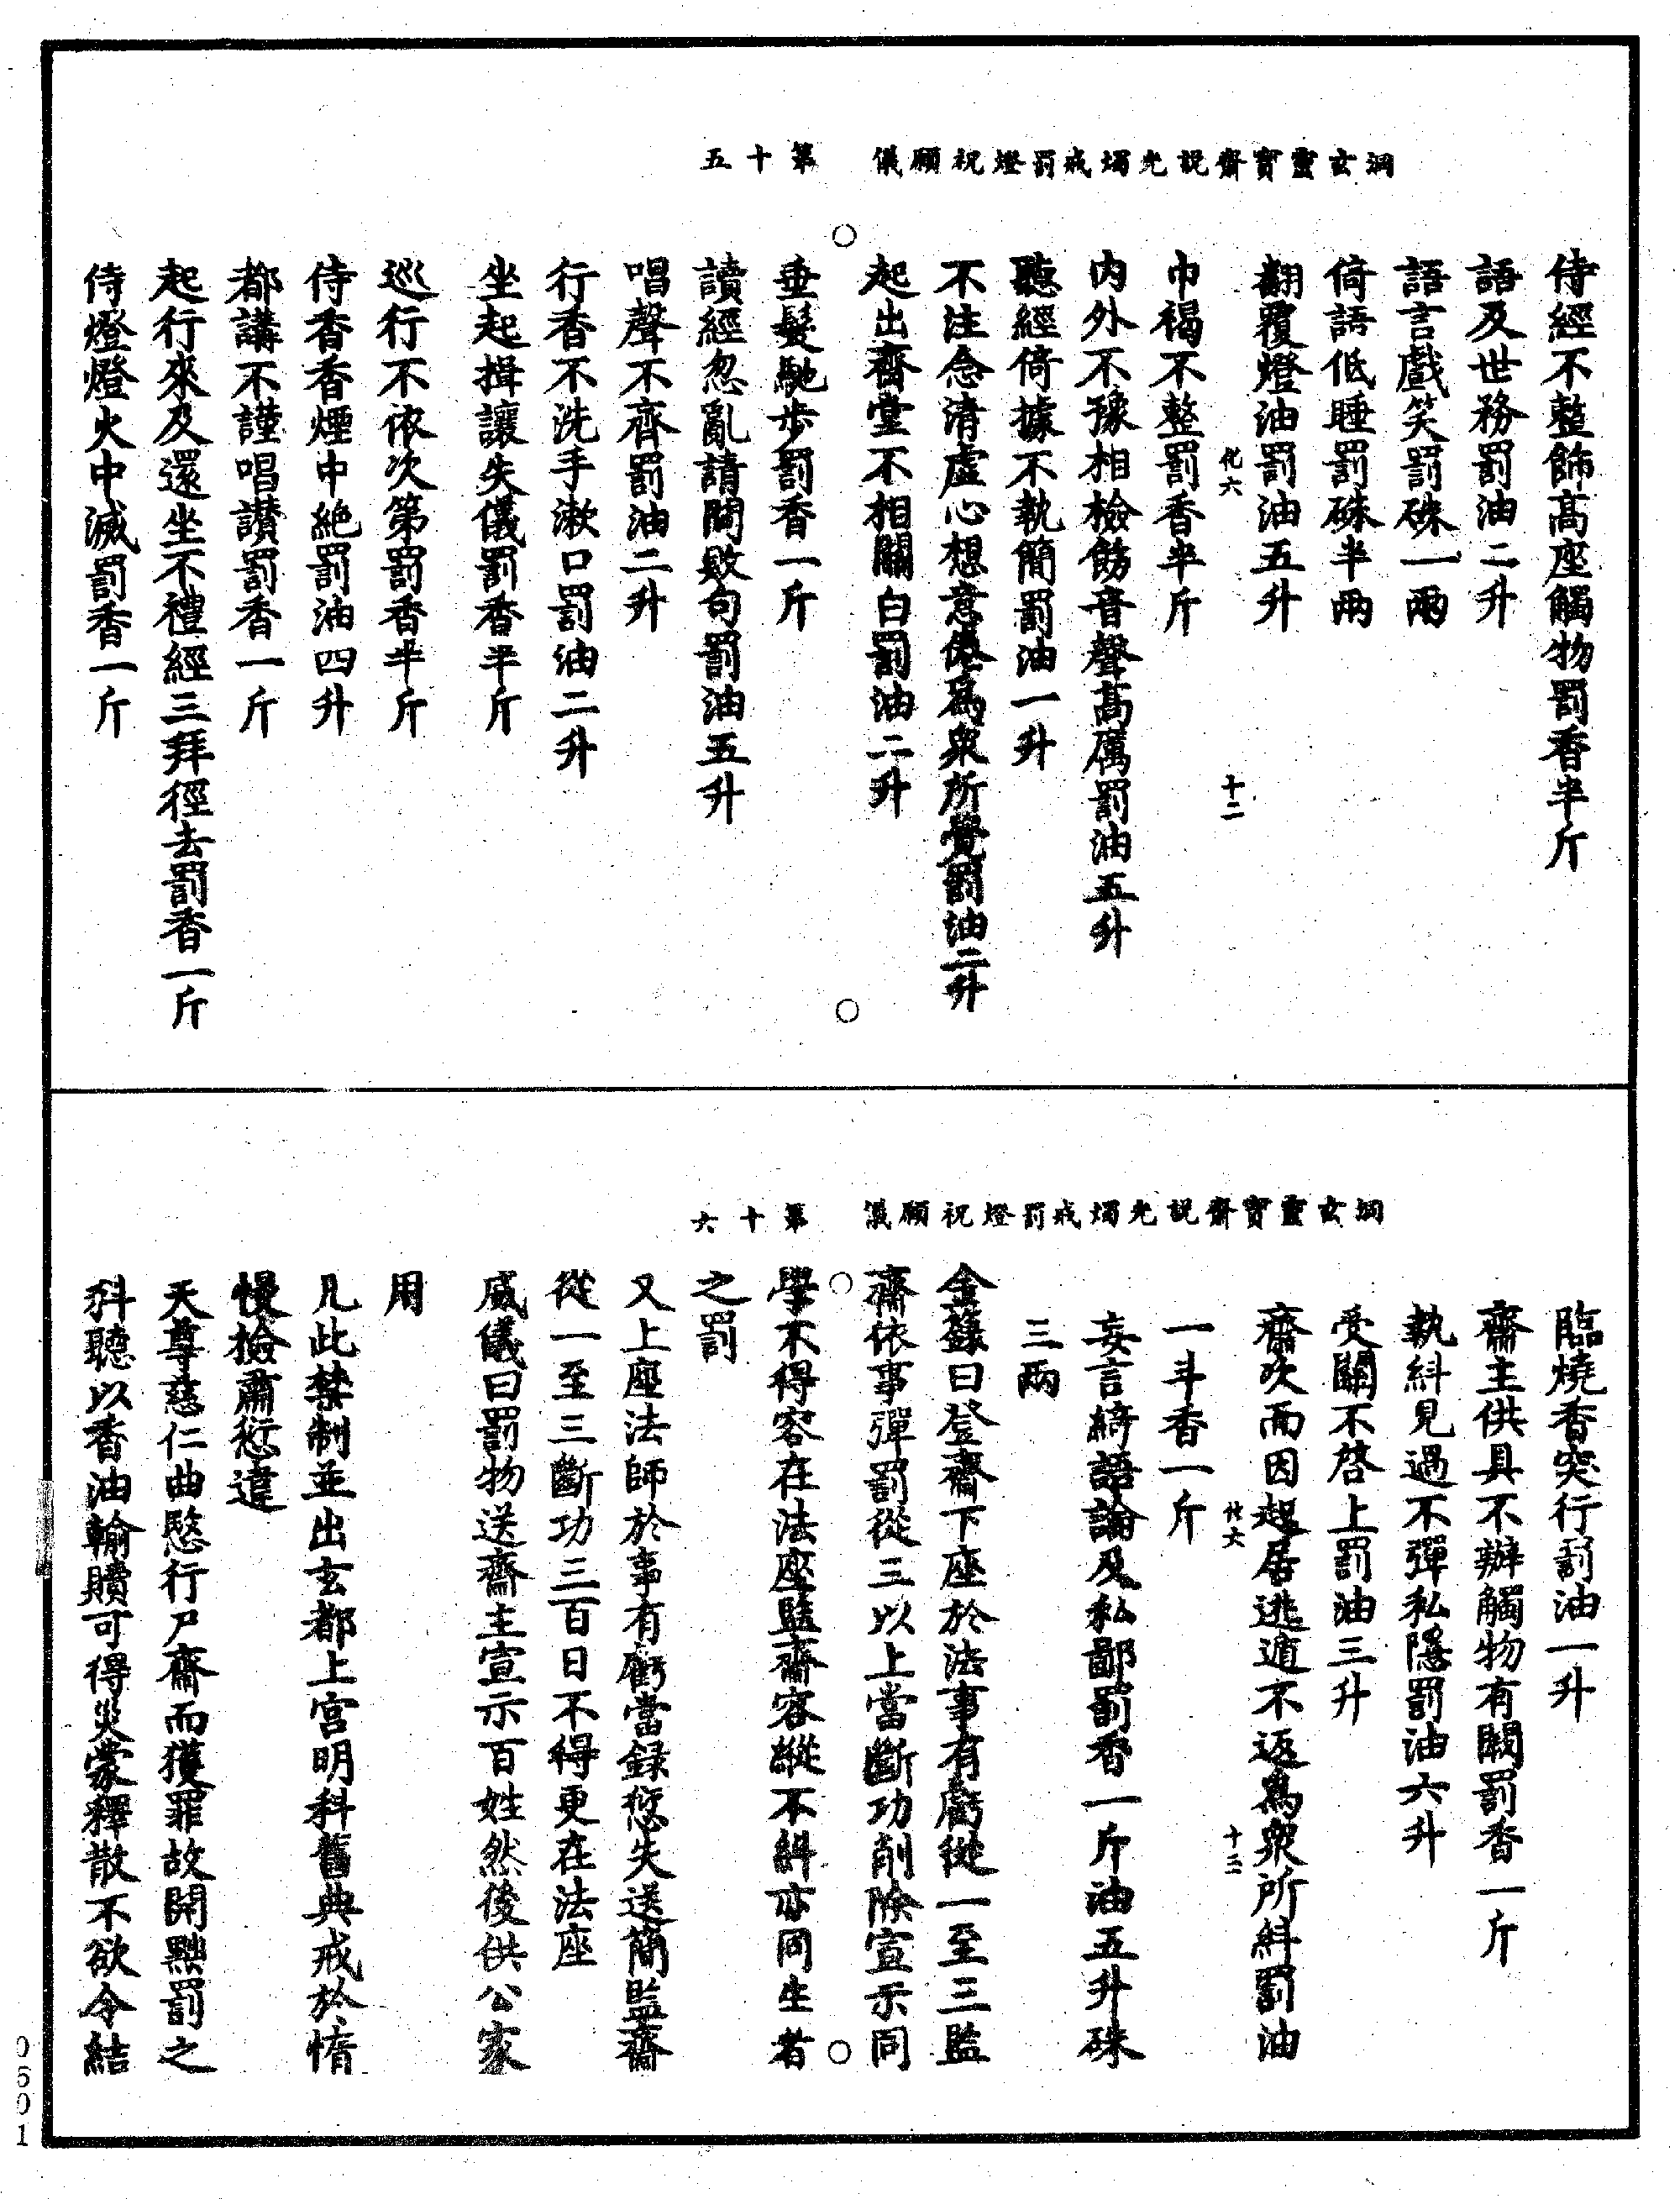 洞玄靈寶齋說光燭戒罰燈祝願儀　第十五
侍經不整飾高座觸物罰香半斤
語及世務罰油二升
語言戲笑罰硃一兩
倚語低睡罰硃半兩
翻覆燈油罰油五升
化六　十二
巾褐不整罰香半斤
內外不豫相檢飭音聲高厲罰油五升
聽經倚據不執簡罰油一升
不注念清虛心想意倦為衆所覺罰油二升
起出齋堂不相關白罰油二升
垂髮馳步罰香一斤
讀經忽亂請問敗句罰油五升
唱聲不齊罰油二升
行香不洗手漱口罰油二升
坐起揖讓失儀罰香半斤
巡行不依次第罰香半斤
侍香香煙中絕罰油四升
都講不謹唱讚罰香一斤
起行來及還坐不禮經三拜徑去罰香一斤
侍燈燈火中滅罰香一斤
洞玄靈寶齋說光燭戒罰燈祝願儀　第十六
臨燒香突行罰油一升
齋主供具不辦觸物有闕罰香一斤
執糾見過不彈私隱罰油六升
受關不啓上罰油三升
齋次而因起居逃遁不返為衆所糾罰油
化六　十三
一斗香一斤
妄言綺語論及私鄙罰香一斤油五升硃
三兩
金籙曰登齋下座於法事有虧從一至三監
齋依事彈罰從三以上當斷功削除宣示同
學不得容在法座監齋容縱不糾亦同生者
之罰
又上座法師於事有虧當録愆失送簡監齋
從一至三斷功三百日不得更在法座
威儀曰罰物送齋主宣示百姓然後供公家
用
凡此禁制並出玄都上宮明科舊典戒於惰
慢檢肅愆違
天尊慈仁曲愍行尸齋而獲罪故開黜罰之
科聽以香油輸贖可得災蒙釋散不欲令結
0601